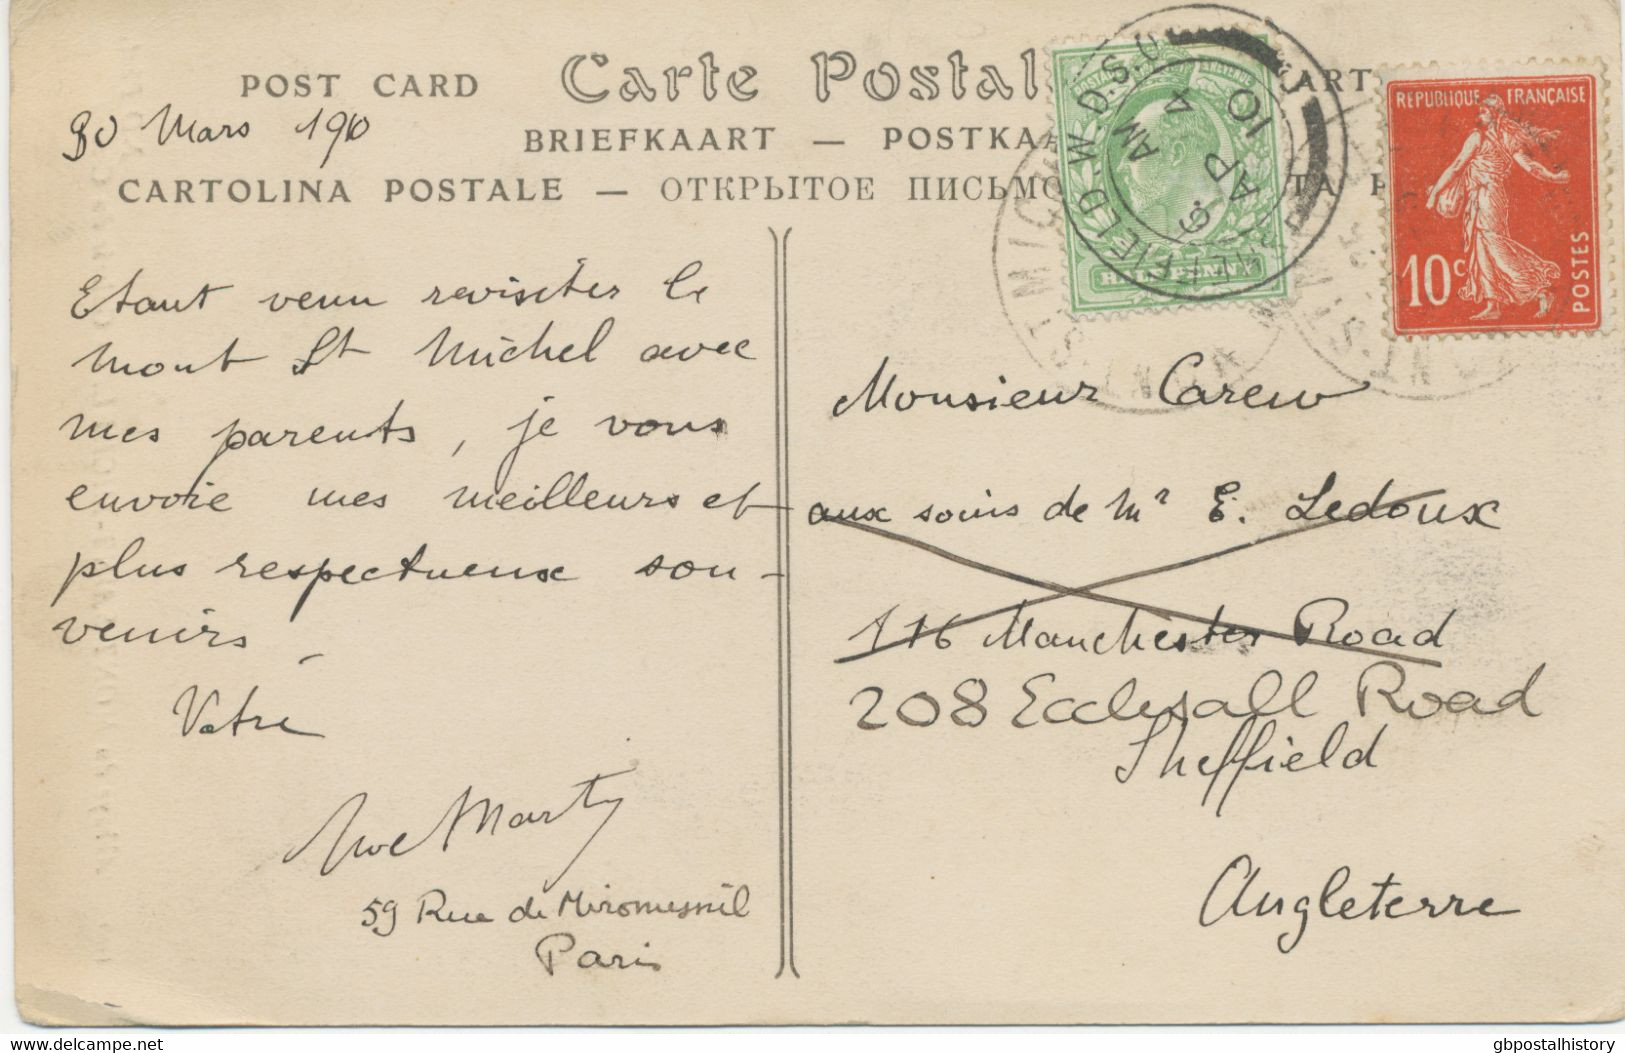 POST CARD Carte Postale
30 Mars 1910
BRIEFKAART — POSTKA
CARTOLINA POSTALE — ОТКРЫТОЕ ПИСЬМО
REPUBLIQUE FRANÇAISE
10c
POSTES
HALFPENNY
SHEFFIELD.W.D.S.O
4 AM
9 AP
10
Etant venu revisiter le
mont St Michel avec
mes parents, je vous
envoie mes meilleurs et
plus respectueux sou-
venirs.
Votre
Marty
59 Rue de Miromesnil
Paris
Monsieur Carew
aux soins de Mr E. Ledoux
116 Manchester Road
208 Ecclesall Road
Sheffield
Angleterre
www.delcampe.net
gbpostalhistory